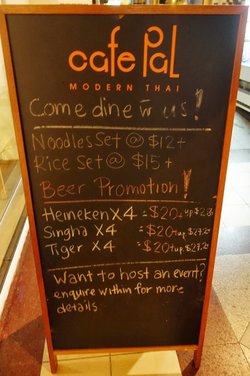 cafe PaL
MODERN THAI
Come dine w̄ us!
Noodles Set @ $12+
Rice Set @ $15+
Beer Promotion!
Heineken X4 = $20+
Singha X4 = $20+
Tiger X4 = $20+
Want to host an event?
enquire within for more
details